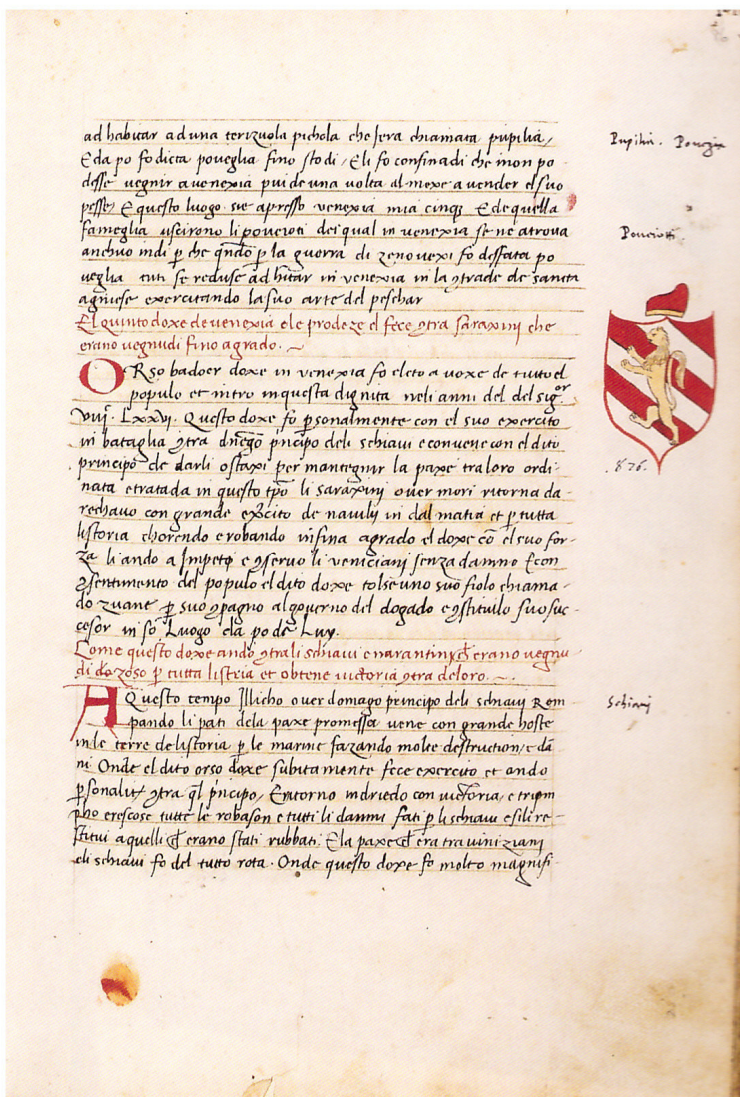 ad habitar ad una terizuola pichola che sera chiamata pupilia /
E da po fo dicta poveglia fino sto di / E li fo confinadi che i non po
desse vegnir a venexia pui de una volta al mexe a vender el suo
pesse / E questo luogo sie apresso venexia mia cinque E de quella
fameglia uscirono li poveroti dei qual in venexia se ne atrova
anchuo indi p̱ che qn̄do p̱ la guerra di zenovexi fo desfata po
veglia tuti se reduse ad hītar in venexia in la ꝯtrade de sancta
agniese exercitando la suo arte del peschar
El quinto doxe de venexia e le prodeze el fece ꝯtra saraxinj che
erano vegnudi fino a grado .~
ORso badoer doxe in venexia fo eleto a voxe de tutto el
populo et intro in questa dignita neli anni del del sigor.
viij. Lxxvj. Questo doxe fo p̱sonalmente con el suo exercito
in bataglia ꝯtra pn̄cipo deli schiavi e convene con el dito
principo de darli ostaxi per mantegnir la paxe tra loro ordi-
nata e tratada in questo tp̄o li saraxinj over mori ritorna da
rechavo con grande exc̄ito de navilij in dalmatia et p̱ tutta
listoria chorendo e robando in fina a grado el doxe cō el suo for-
za li ando a Impeto e ꝯservo li veniciani senza damno E con
ꝯsentimento del populo el dito doxe tolse uno suo fiolo chiama-
do zuane p̱ suo ꝯpagno al governo del dogado e ꝯstituilo suo suc-
cesor in so Luogo e la po de Luy.
Come questo doxe ando ꝯtra li schiavi e narantinj che erano vegnu-
di p̱ tutta listria et obtene victoria ꝯtra de loro .~
AQuesto tempo Illicho over domago principo deli schiavi Rom-
pando li pati dela paxe promessa vene con grande hoste
in le terre de listoria p̱ le marine fazando molte destruction / e dā
ni Onde el dito orso doxe subitamente fece exercito et ando
p̱sonalit̄ ꝯtra q̄l pn̄cipo / E ritorno indriedo con victoria / e trium
pho e rescose tutte le robason e tutti li danni fati p̱ li schiavi e sili re-
stitui a quelli che erano stati rubbati. E la paxe che era tra viniziani
e li schiavi fo del tutto rota. Onde questo doxe fo molto magnifi-
Pupilia. Povegia
Poverotti.
.876.
Schiavj